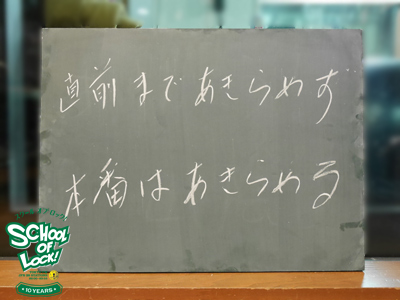 直前まであきらめず
本番はあきらめる
SCHOOL
OF
LOCK!
10 YEARS